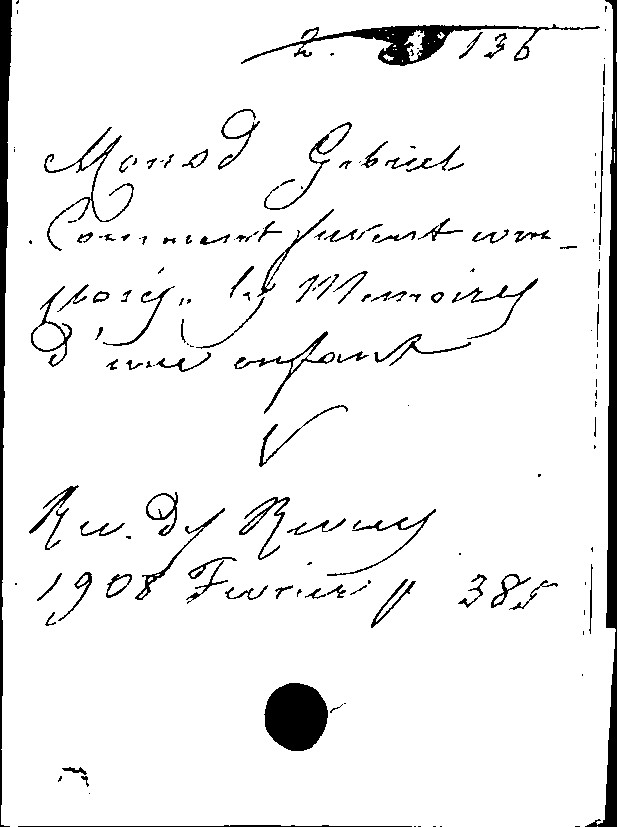 2. 136
Monod Gabriel
Comment furent com-
posés les Memoires
d'une enfant
V
Rev. des Revues
1908 Fevrier p 385